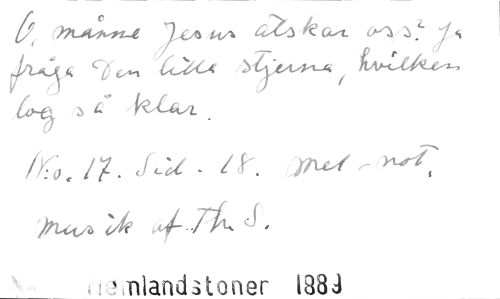 O, månne Jesus älskar oss? Ja
fråga Den lilla stjerna, hvilken
log så klar.
No. 17. Sid. 18. Mel-not.
musik af Th. S.
Hemlandstoner 1889